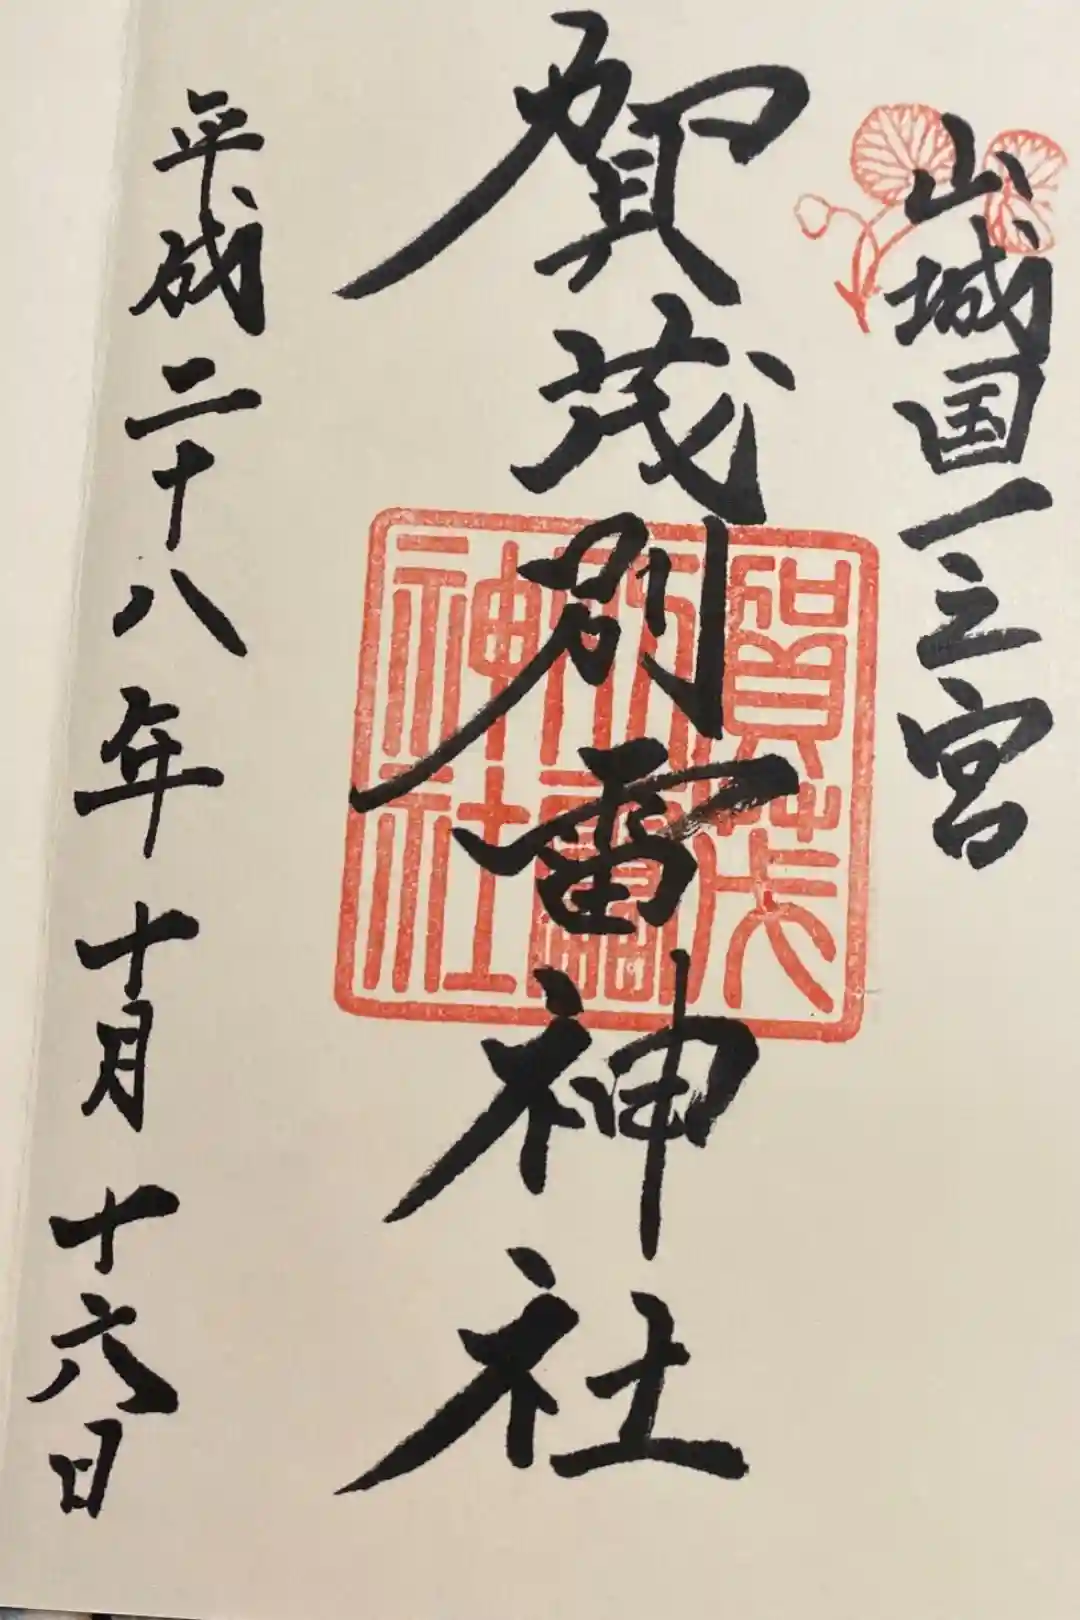 山城国一之宮
賀茂別雷神社
賀茂
別雷
神社
平成二十八年十月十六日